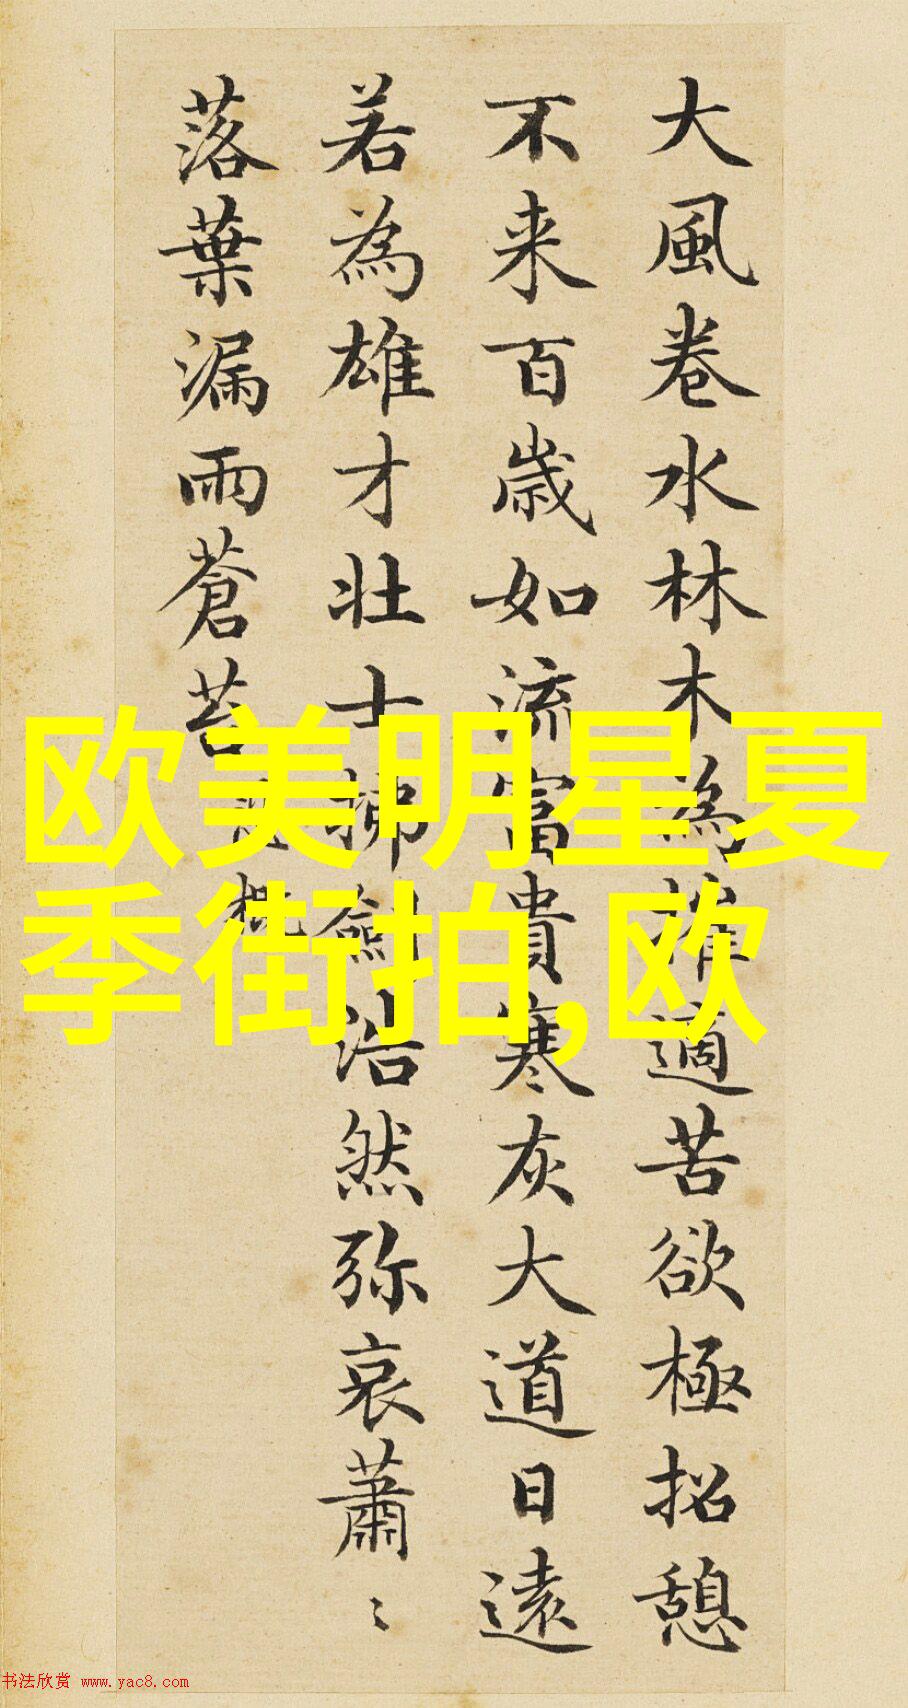 大風卷水林木為摧適苦欲極招憩
不来百歲如流富貴寒灰大道日遠
若為雄才壯士拂劍浩然弥哀蕭〻
落葉漏雨蒼苔
欧美明星夏
季街拍,欧
书法欣赏 www.yac8.com